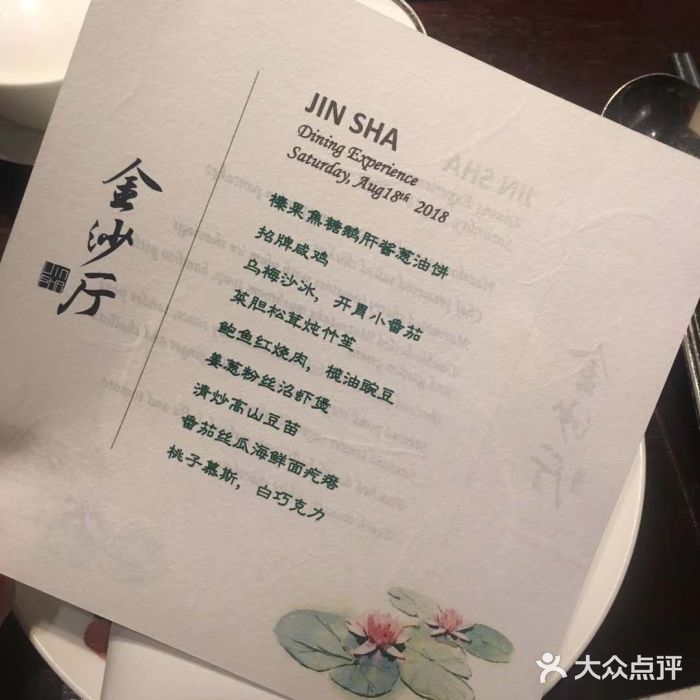 JIN SHA
Dining Experience
Saturday, Aug18th 2018
金沙厅
JIN SHA
榛果焦糖鹅肝酱葱油饼
招牌咸鸡
乌梅沙冰，开胃小番茄
菜胆松茸炖竹笙
鲍鱼红烧肉，榄油豌豆
姜葱粉丝沼虾煲
清炒高山豆苗
番茄丝瓜海鲜面疙瘩
桃子慕斯，白巧克力
大众点评